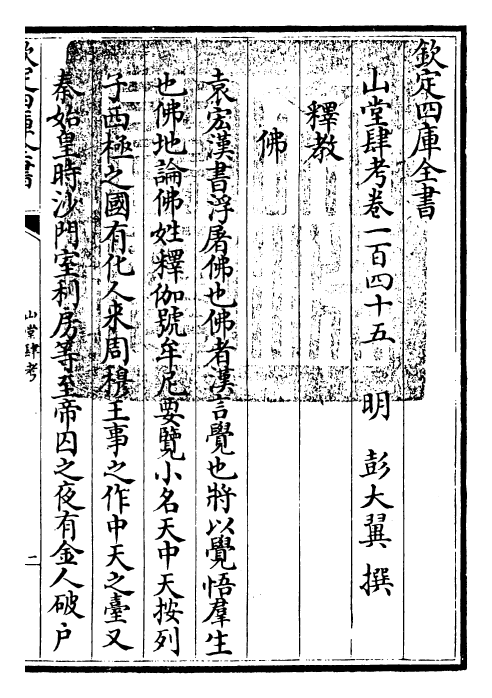 欽定四庫全書
山堂肆考卷一百四十五　明　彭大翼　撰
釋教
佛
袁宏漢書浮屠佛也佛者漢言覺也將以覺悟羣生
也佛地論佛姓釋伽號牟尼要覽小名天中天按列
子西極之國有化人来周穆王事之作中天之臺又
秦始皇時沙門室利房等至帝囚之夜有金人破户
欽定四庫全書
山堂肆考